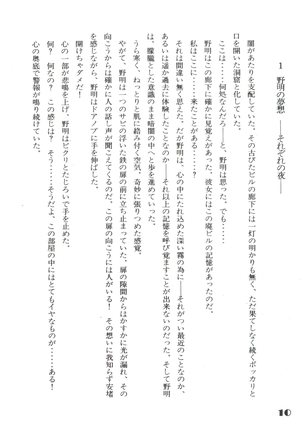 1　野明の夢想 ── それぞれの夜 ──
闇があたりを支配していた。その古びたビルの廊下には一灯の明かりも無く、ただ果てしなく続くポッカリと
口を開いた洞窟と化していた。
ここは……何処なんだろ……と、野明は思った。でも……
私はここに……来たことがある……？
野明はこの廊下に確かに見覚えがあった。彼女にはこの廃ビルの記憶があったのだ。
それは間違い無く思えた。だが野明は、心の中にたれ込めた深い霧の為に──それがつい最近のことなのか、
あるいは遥か過去に体験したことなのか──それ以上の記憶を呼び覚ますことが出来ないのだった。そして野明
は、朦朧とした意識のまま暗闇の中へと歩を進めていった。
うら寒く、ねっとりと肌に絡み付く空気。奇妙に張りつめた感覚。
やがて、野明は一つのサビの浮いた鉄の扉の前に立ち止まっていた。扉の隙間からはかすかに光が漏れ、その
向こうからは人の話し声が聞こえてくるのだ。この扉の向こうには人がいる！　その想いに我知らず安堵
を感じながら、野明はドアノブに手を伸ばした。
開けちゃダメだ！
心の何処かが悲鳴を上げ、野明はビクリとたじろいで手を止めた。
何？　何なの？　この感じは？　そう……そうだよ。この部屋の中にはとてもイヤなものが……ある！
心の奥底で警報が鳴り続けていた。
10